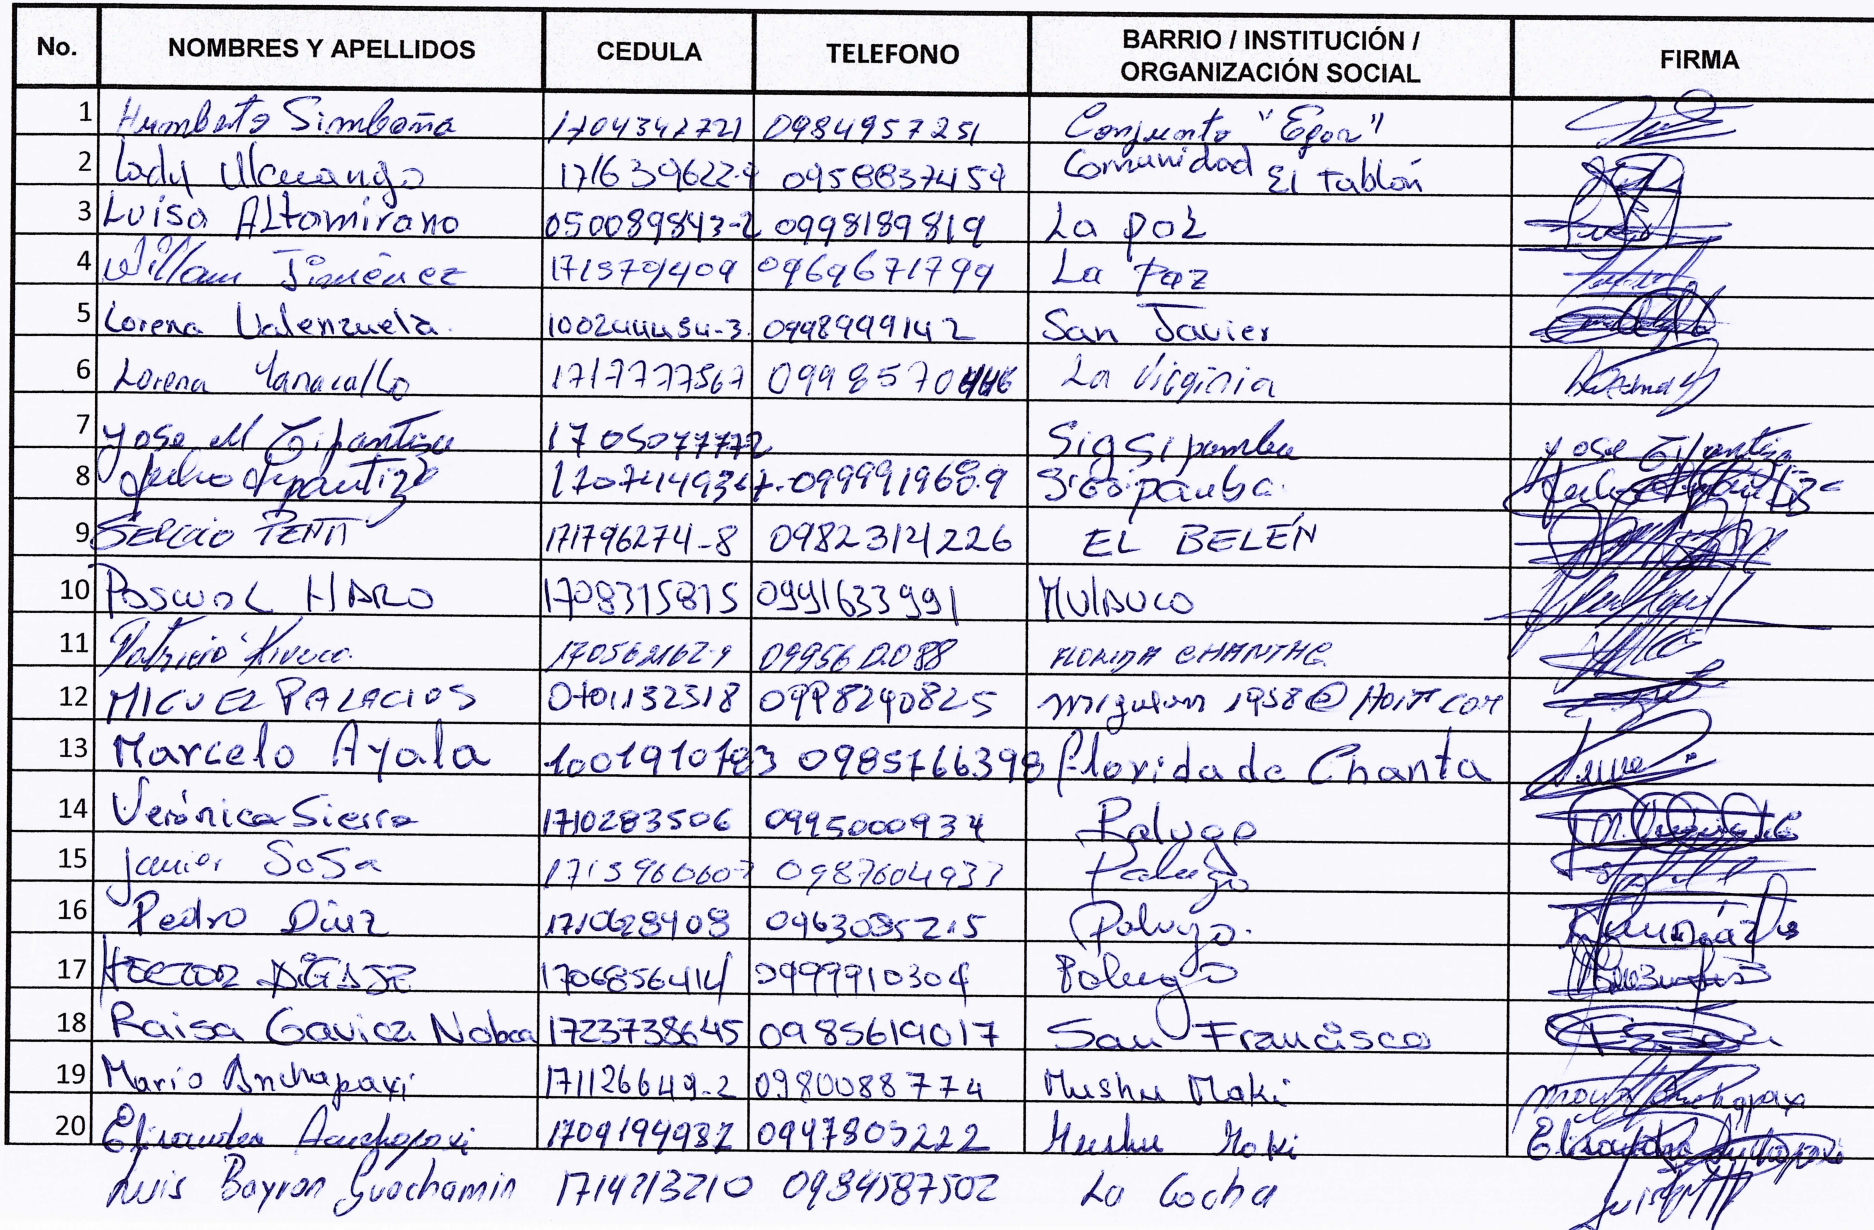 No. NOMBRES Y APELLIDOS CEDULA TELEFONO BARRIO / INSTITUCIÓN / ORGANIZACIÓN SOCIAL FIRMA
1 Humberto Simbaña 1704342721 0984957251 Conjunto "Egor"
2 Lady Ulcuango 171639622-9 0958837459 Comunidad El Tablón
3 Luisa Altamirano 050089843-2 0998189819 La paz
4 William Jiménez 1715791409 0969671799 La Paz
5 Lorena Valenzuela. 100244454-3 0998999142 San Javier
6 Lorena Yanacallo 1717777567 0998570446 La Virginia
7 Jose M Tipantiza 1705077772 Sigsipamba Jose Tipantiza
8 1707414936-7 0999919689
9 SERGIO PEÑA 171796274-8 0982314226 EL BELÉN
10 PASCUAL HARO 1708315815 0991633991 MULAUCO
11 Patricio 0995612088 FLORIDA CHANTAG
12 MIGUEL PALACIOS 0701132318 0998290825
13 Marcelo Ayala 1001910783 0985766398 Florida de Chanta
14 Verónica Sierra 1710283506 0995000934 Palugo
15 Javier Sosa 1715960607 0987604933 Palugo
16 Pedro Diaz 1710628408 0963085215 Palugo.
17 HECTOR 1706856414 0999910304 Palugo
18 Raisa Gavica Noboa 1723738645 0985619017 San Francisco
19 Mario Anchapaxi 171126649-2 0980088774 Mushu Maki Mario Anchapaxi
20 Elisandra Anchapaxi 1709194932 0997805222 Mushu Maki Elisandra Anchapaxi
Luis Bayron Guachamin 1714213210 0984587502 La Cocha